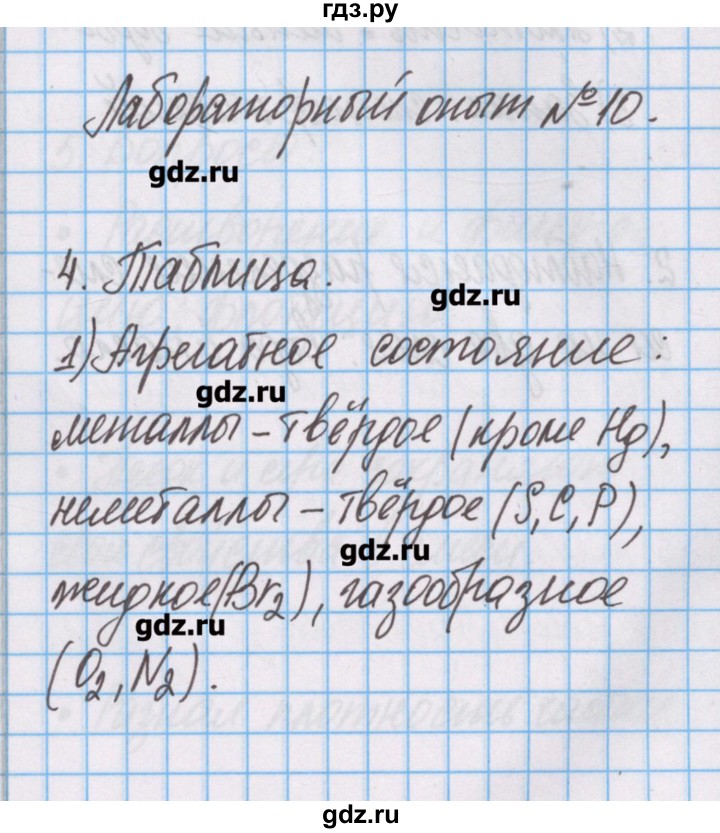 гдз.ру
Лабораторный опыт №10.
gdz.ru
4. Таблица.
gdz.ru
1) Агрегатное состояние:
gdz.ru
металлы – твёрдое (кроме Hg),
неметаллы – твёрдое (S, C, P),
gdz.ru
жидкое (Br2), газообразное
gdz.ru
(O2, N2).
gdz.ru